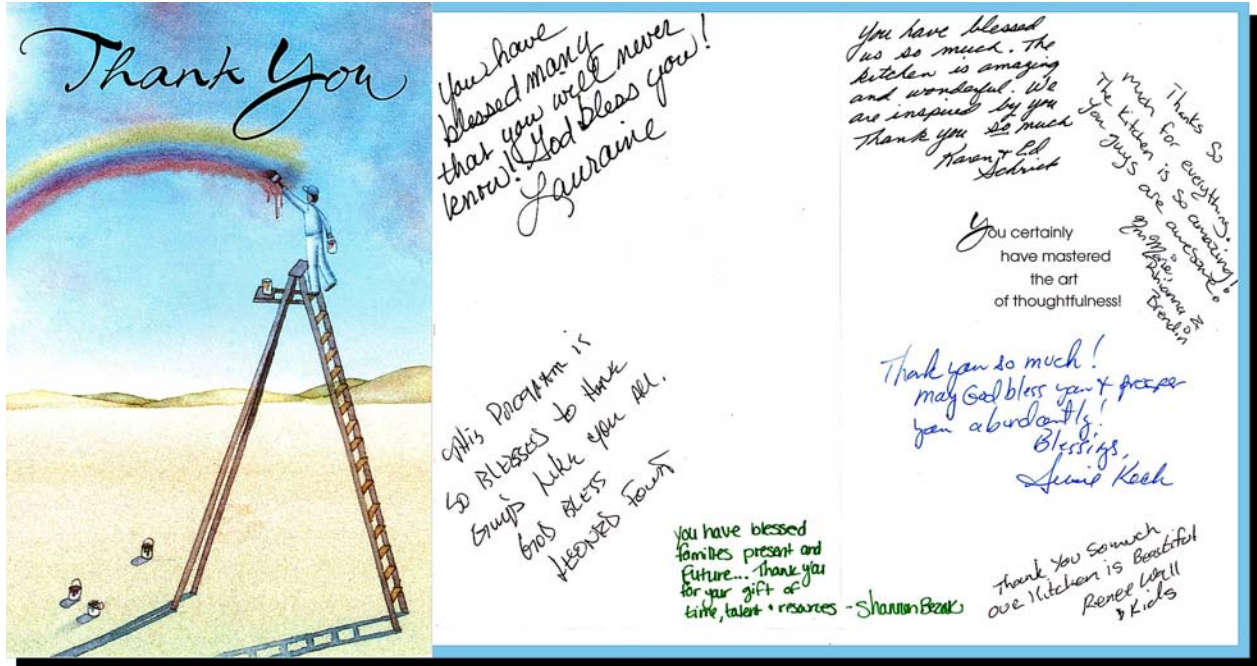 Thank You
You have
blessed many
that you will never
know! God bless you!
Lauraine
This Program is
so BLESSED to HAVE
Guys Like you All.
GOD BLESS
You have blessed
families present and
Future... Thank you
for your gift of
time, talent + resources - Shannan
You have blessed
us so much. The
kitchen is amazing
and wonderful. We
are inspired by you
Thank you so much
Karen + Ed
Schrick
Thanks so
much for everything.
The kitchen is so amazing!
You guys are awesome!
Brendin
You certainly
have mastered
the art
of thoughtfulness!
Thank you so much!
may God bless you & prosper
you abundantly!
Blessings,
Koch
Thank You So much
our Kitchen is Beautiful
Renee Wall
& Kids